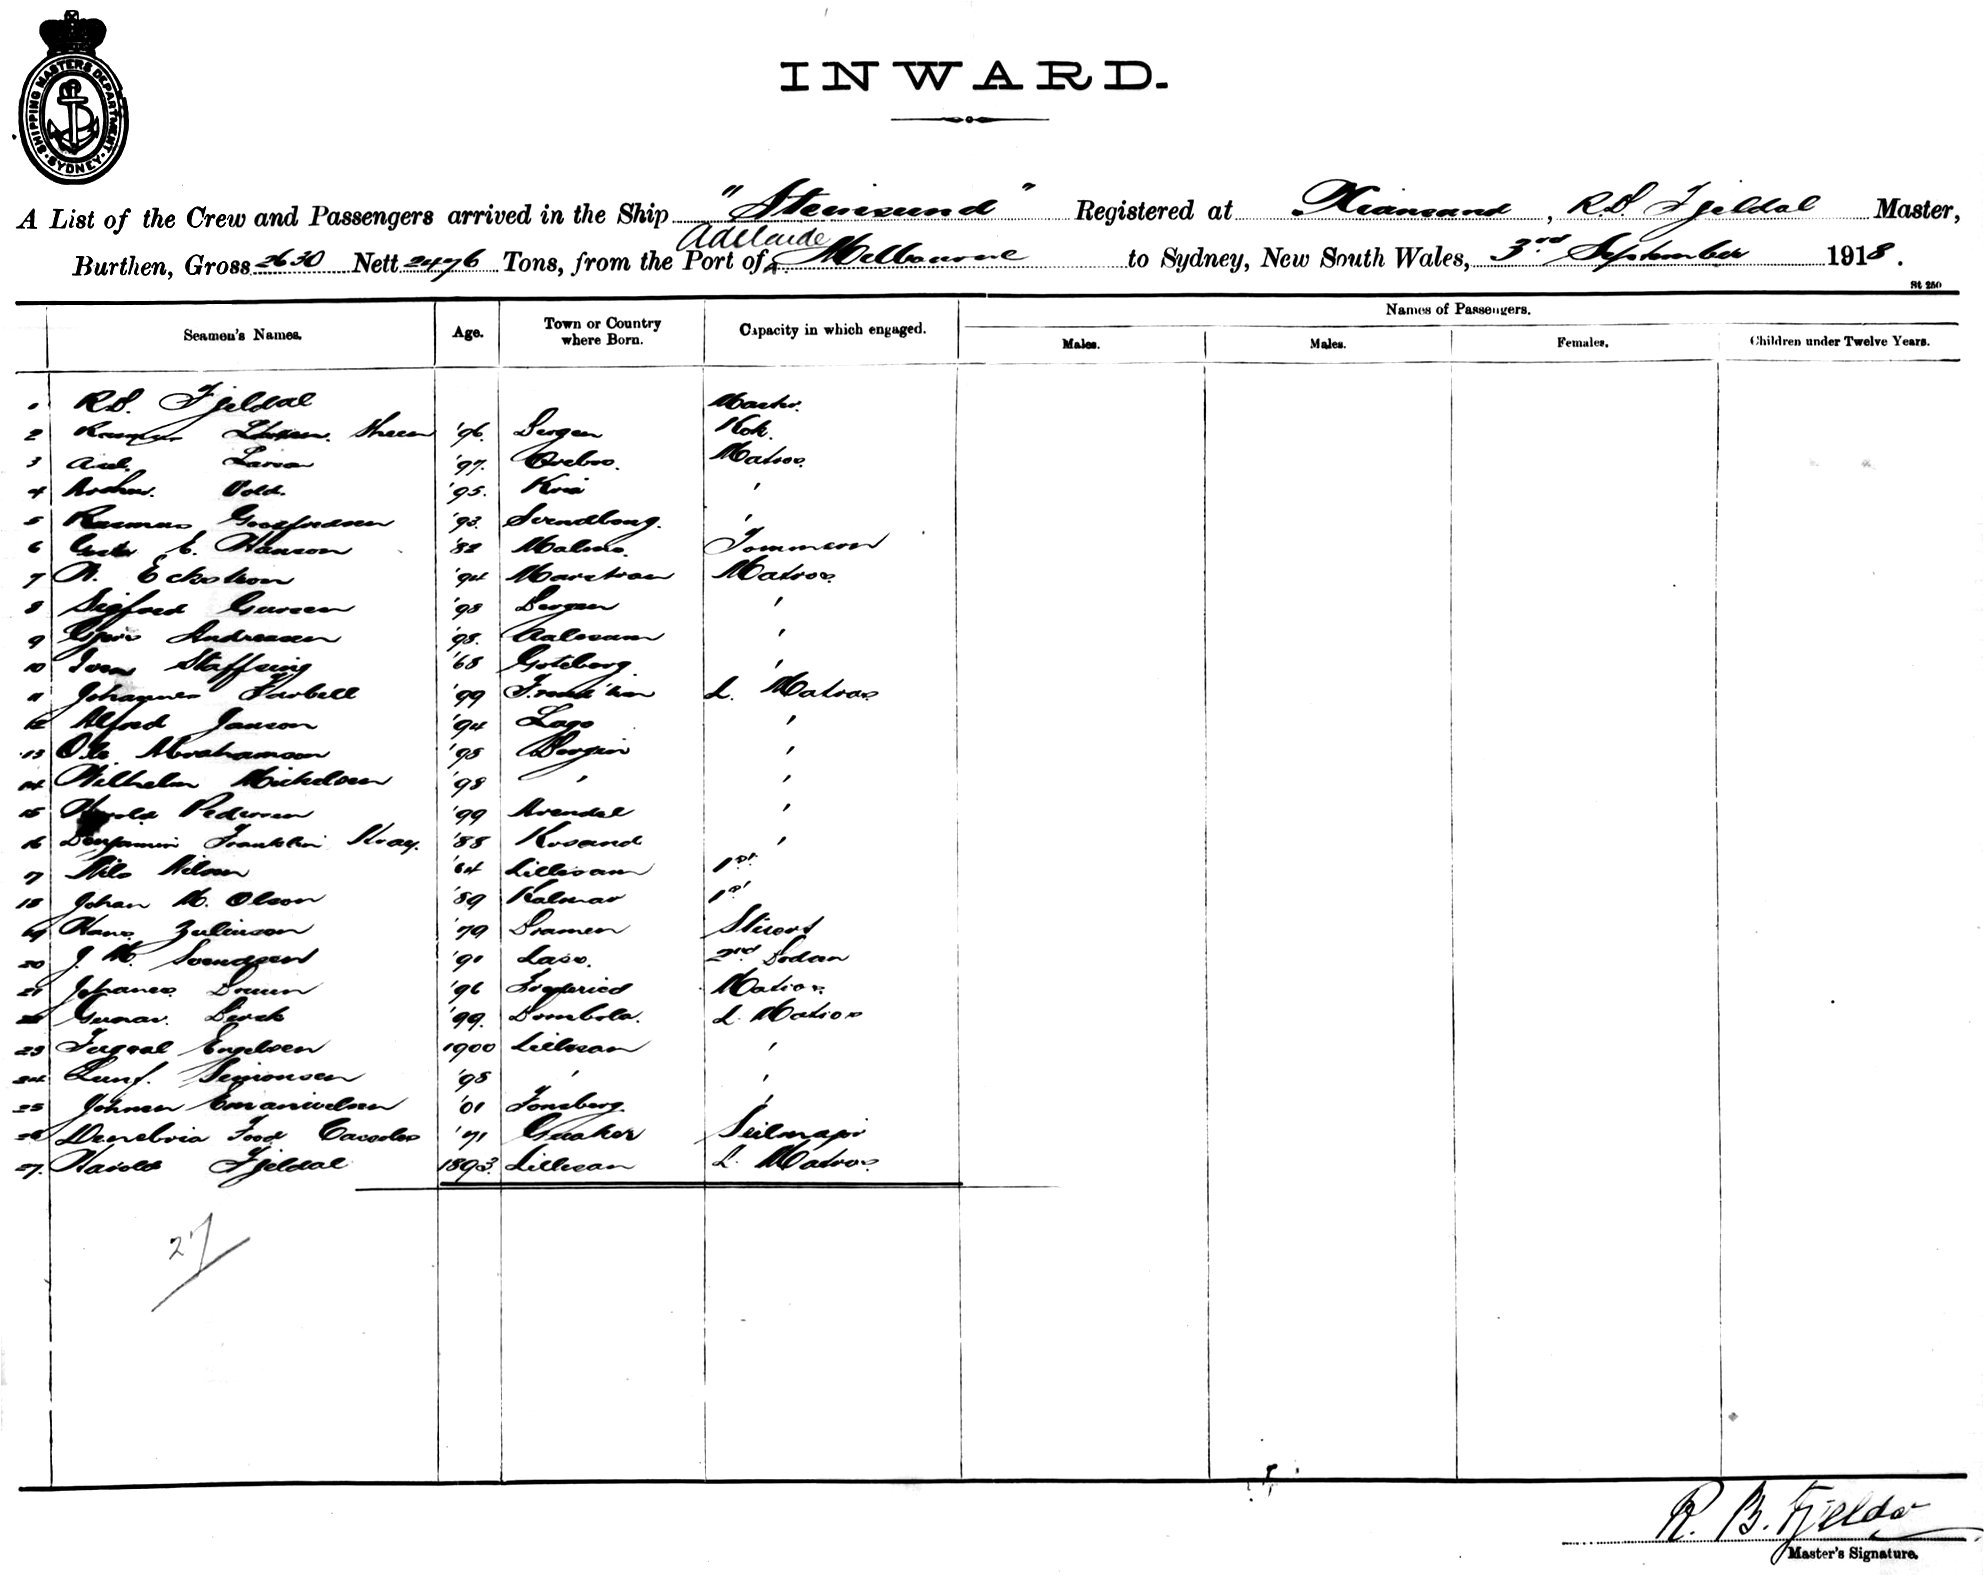 SHIPPING MASTERS DEPARTMENT · SYDNEY ·
INWARD.
A List of the Crew and Passengers arrived in the Ship "Steinsund" Registered at Xiansand, R.B. Fjeldal Master,
Adelaide
Burthen, Gross 2630 Nett 2476 Tons, from the Port of Melbourne to Sydney, New South Wales, 3rd September 1918.
St 250
Seamen's Names. Age. Town or Country where Born. Capacity in which engaged. Names of Passengers.
Males. Males. Females. Children under Twelve Years.
1 R.B. Fjeldal Master.
2 '96. Bergen Kok.
3 Axel Larson '97. Orebro. Matros.
4 Arthur. Vold. '95. Kria "
5 Rasmus '93. Svendborg. "
6 E. Hanson '82 Malmo. Tommerm
7 A. Eckstrom '94 Marstran Matros.
8 Sigfred '98 Bergen "
9 Andreasen '98. Aalesun "
10 Ivan Staffring '68 Goteborg "
11 Johannes Farbell '99 L. Matros
12 Alfred Janson '94 "
13 Ole. Abrahamson '98 Bergin "
14 Wilhelm Mickelsen '98 " "
15 Harold Pedersen '99 Arendal "
16 Benjamin Franklin Kray. '88 Krsand "
17 Nils Nilsen '64 Lillesan 1st
18 Johan M. Olson '89 Kalmar 1st
19 Hans '79 Dramen Stuert
20 J. M. Svendsen '90 2nd
21 Johanes '96 Matros.
22 Gunnar. '99. L. Matros
23 Engelsen 1900 Lillesan "
24 Simonsen '98 " "
25 Emanuelsen '01 Tonsberg. "
26 '71 Seilmager
27. Harold Fjeldal 1893. Lillesan L. Matros.
27
R. B. Fjeldal
Master's Signature.